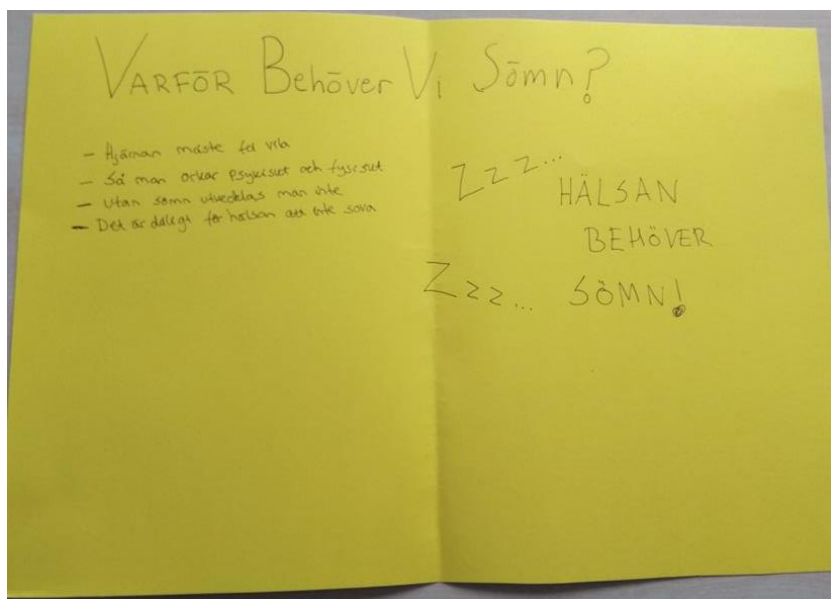 VARFÖR Behöver Vi Sömn?
- Hjärnan måste få vila
- Så man orkar psykiskt och fysiskt
- Utan sömn utvecklas man inte
- Det är dåligt för hälsan att inte sova
Zzz...
HÄLSAN
BEHÖVER
Zzz... SÖMN!